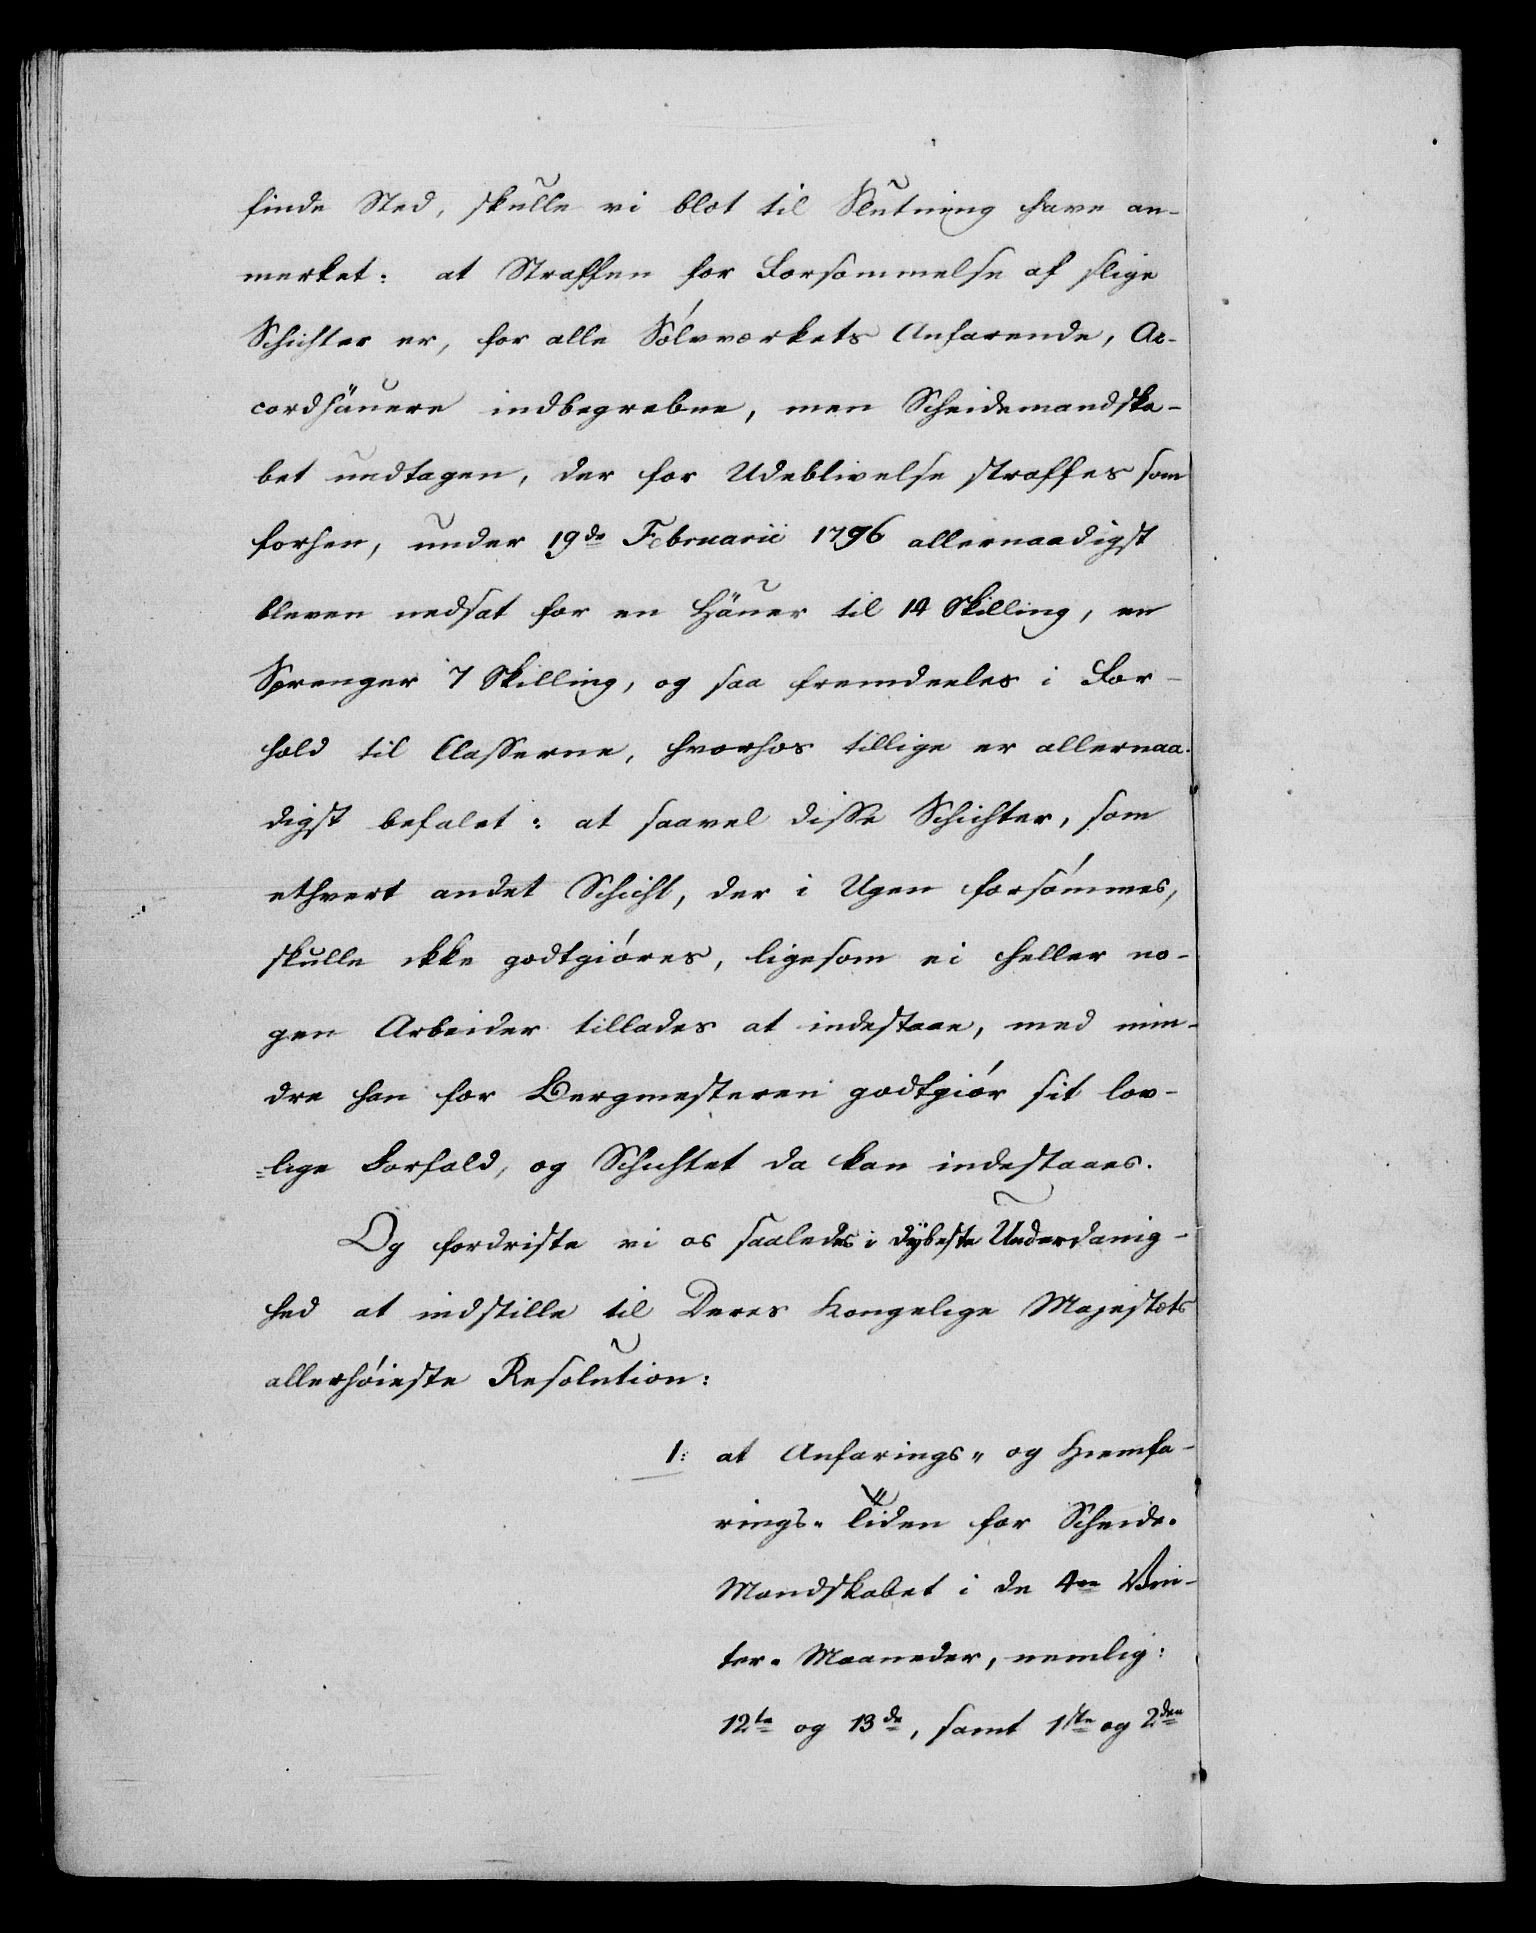 finde Sted, skulle vi blot til Slutning have an-
merket: at Straffen for Forsømmelse af slige
Schichter er, for alle Sölvværkets Anfarende, Ac-
cordhäuere indbegrebne, men Scheidemandska-
bet undtagen, der for Udeblivelse straffes som
forhen, under 19de Februarii 1796 allernaadigst
bleven nedsat for en Häuer til 14 Skilling, en
Sprenger 7 Skilling, og saa fremdeeles i For-
hold til Classerne, hvorhos tillige er allernaa-
digst befalet: at saavel disse Schichter, som
ethvert andet Schicht, der i Ugen forsömmes,
skulle ikke godtgiöres, ligesom ei heller no-
gen Arbeider tillades at indestaae, med min-
dre han for Bergmesteren godtgiör sit lov-
-lige Forfald, og Schichtet da kan indestaaes.
Og fordriste vi os saaledes i dÿbeste Underdanig-
hed at indstille til Deres Kongelige Majestæts
allerhöieste Resolution:
1: at Anfarings- og Hiemfa-
rings-Tiden for Scheide-
Mandskabet i de 4re Vin-
ter-Maaneder, nemlig:
12te og 13de, samt 1ste og 2den